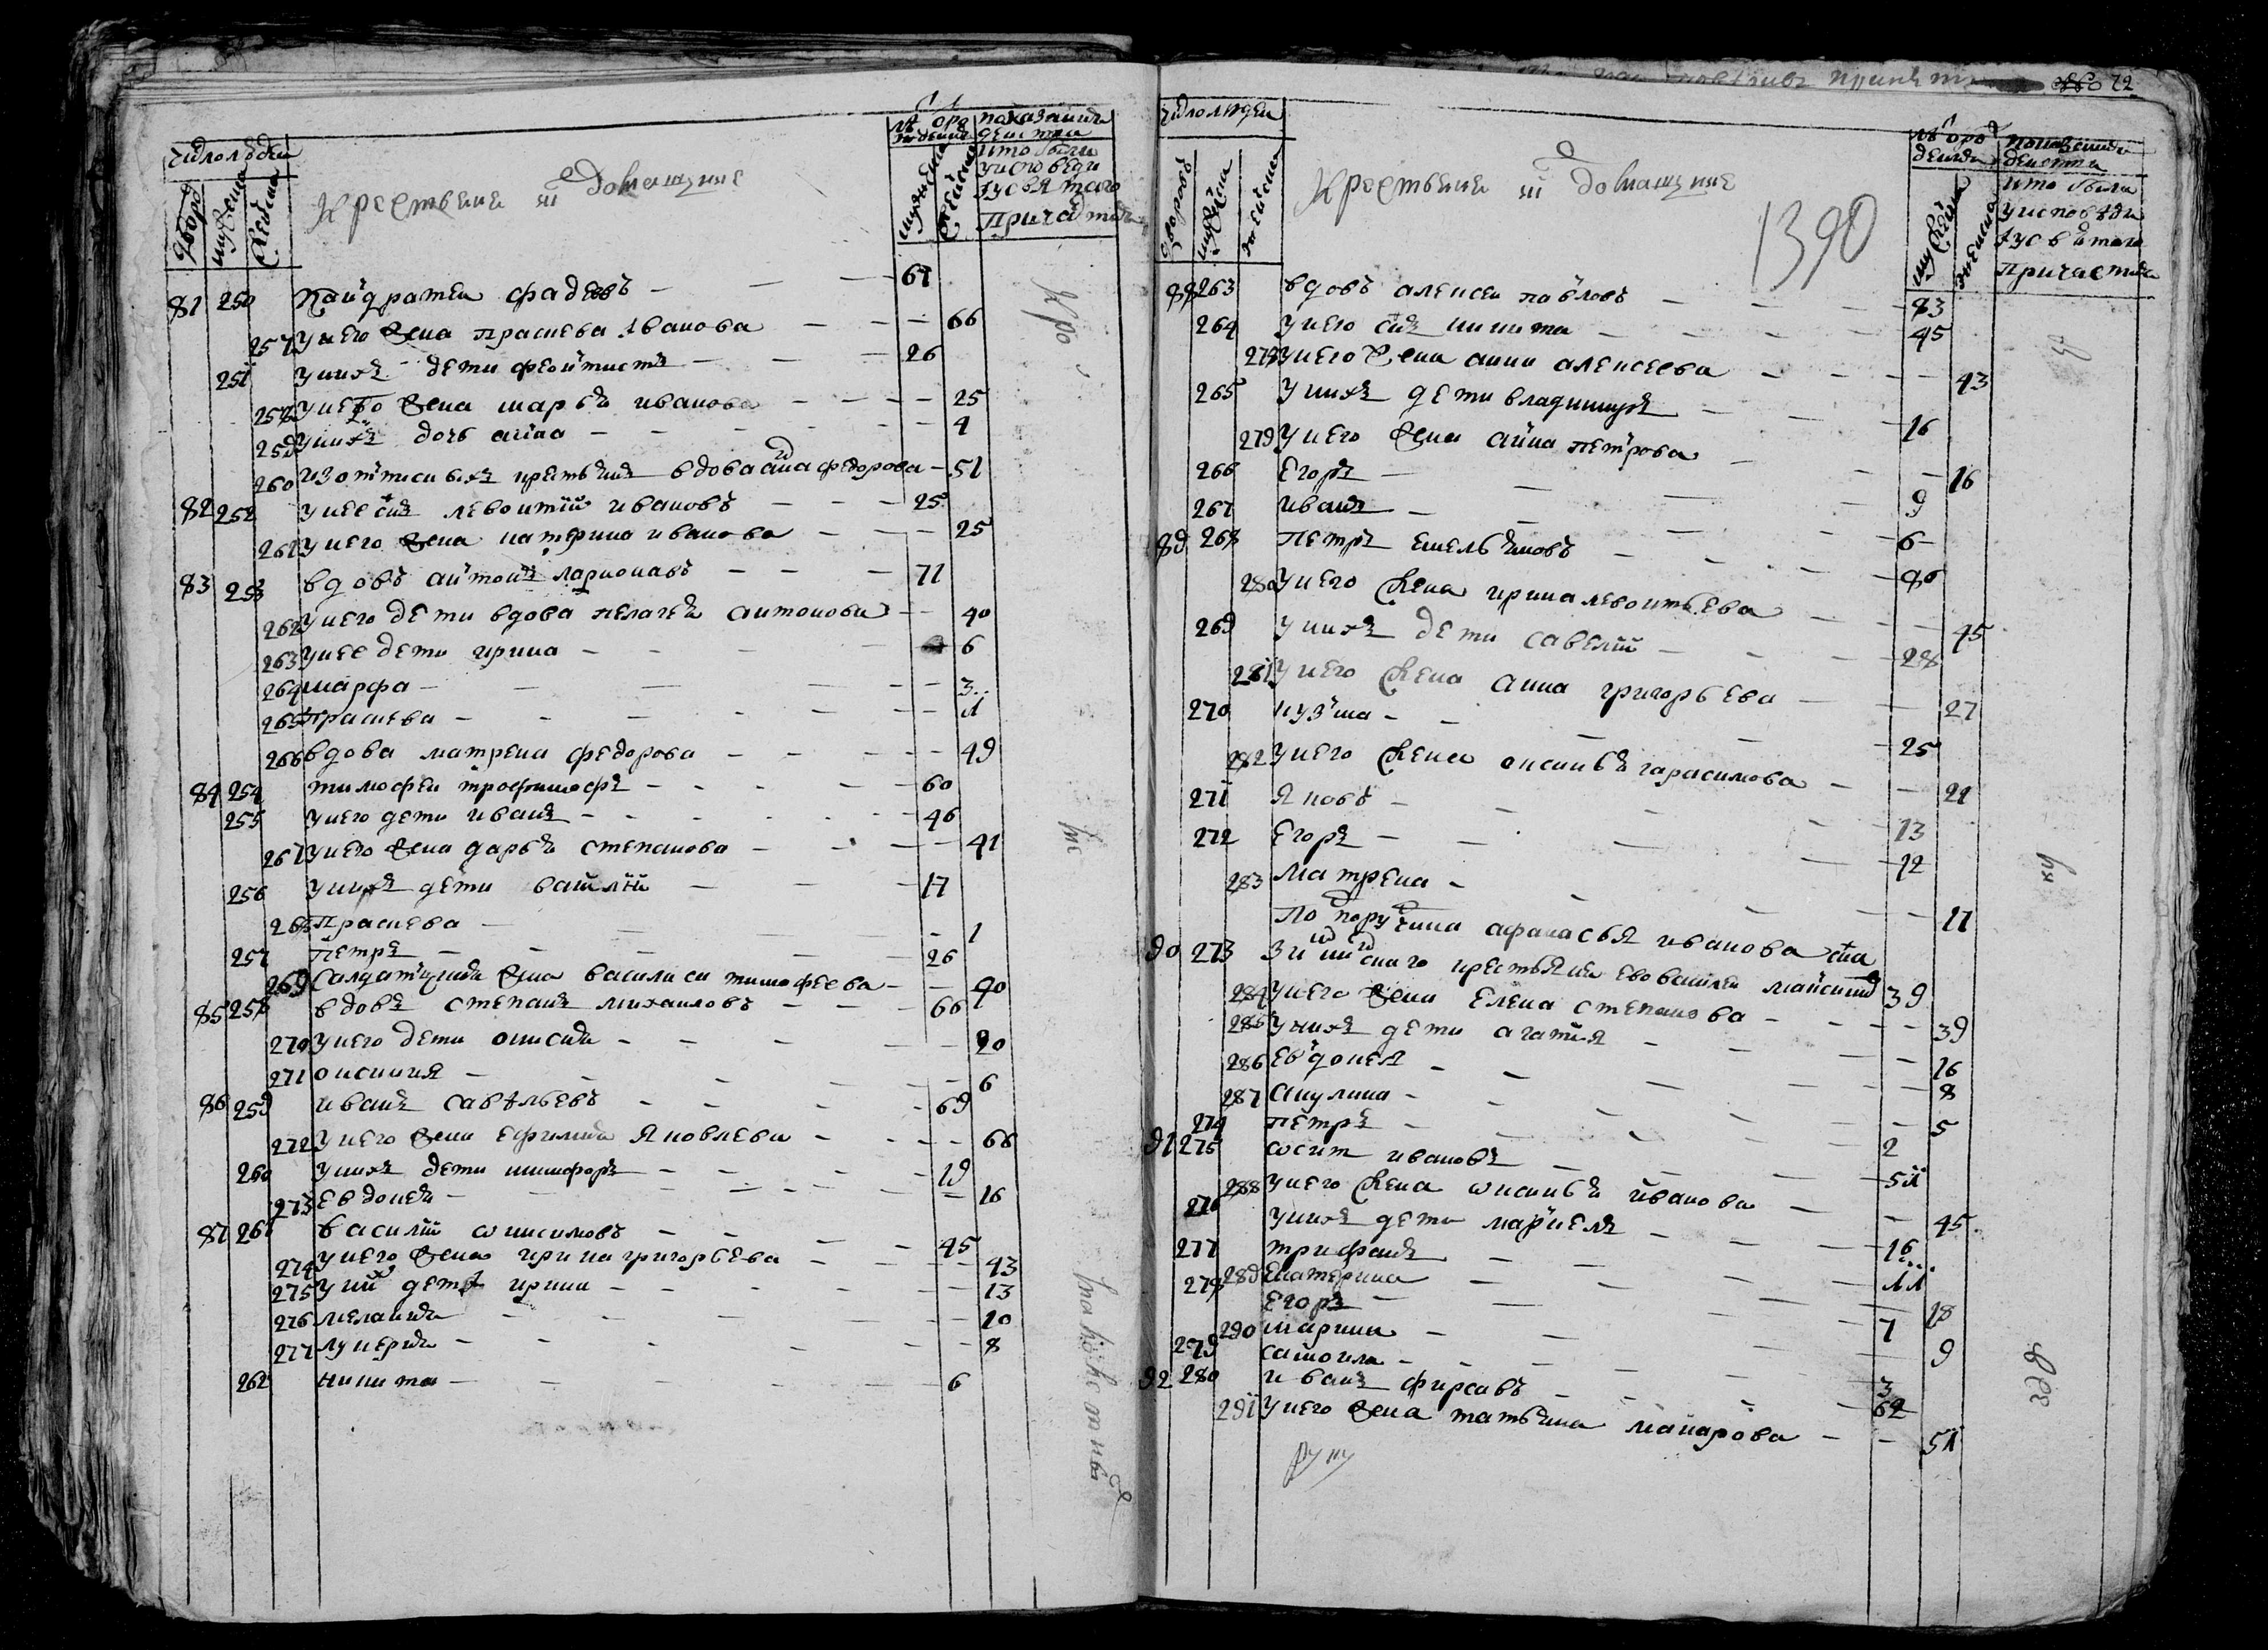 число людеи
дворовъ
мужеска
женска
крестьяне и домашние
лѣ от рождениѧ
мужеска
женска
показание действа кто были
у исповеди
и у свѧтаго
причастиѧ
81 250 Кандратеи фадеевъ — — — 67
257 у него жена праскева иванова — — — 66
251 у нихъ дети феоктистъ — — — 26
258 у него жена марьѧ иванова — — — 25
259 у нихъ дочь анна — — — 4
260 из оттписных крестьѧнъ вдова анна федорова — 51
82 252 у нее сн҃ъ левонтий ивановъ — — — 25
261 у него жена катерина иванова — — — 25
83 253 вдовъ антонъ ларионавъ — — — 71
262 у него дети вдова пелагеѧ антонова — — 40
263 у нее дети ирина — — — 6
264 марфа — — — 3
265 праскева — — — 1
266 вдова матрена федорова — — — 49
84 254 тимофеи трофимофъ — — — 60
255 у него дети иванъ — — — 46
267 у него жена дарьѧ степанова — — — 41
256 у нихъ дети василий — — — 17
268 Праскева — — — 1
257 Петръ — — — 26
269 салдатская жена василиса тимофеева — — 40
85 258 вдовъ степанъ михаиловъ — — — 66
270 у него дети анисиѧ — — — 20
271 оксиния — — — 6
86 259 иванъ савѣльевъ — — — 69
272 у него жена ефимиѧ Яковлева — — — 66
260 у нихъ дети никифоръ — — — 19
273 Евдокеѧ — — — 16
87 261 василий ѡнисимовъ — — — 45
274 у него жена ирина григорьева — — — 43
275 у них дети ирина — — — 13
276 меланиѧ — — — 10
277 лукериѧ — — — 8
262 никита — — — 6
72
число людеи
дворовъ
мужеска
женска
крестьяне и домашние
1390
лѣ от рождениѧ
мужеска
женска
показание действа
кто были
у исповеди
и у свѧтаго
Причастиѧ
88 263 вдовъ алексеи павловъ — — — 83
264 у него сн҃ъ никита — — — 45
278 у него жена анна алексеева — — — 43
265 у нихъ дети владимиръ — — — 16
279 у него жена анна петрова — — — 16
266 Егоръ — — — 9
267 иванъ — — — 6
89 268 Петръ емельѧновъ — — — 46
280 у него жена ирина левонтьева — — — 45
269 у нихъ дети савелий — — — 28
281 у него жена анна григорьева — — — 27
270 кузма — — — 25
282 у него жена аксиньѧ гарасимова — — 21
271 Яковъ — — — 13
272 Егоръ — — — 12
283 Матрена — — — 11
Подпоручика афанасья иванова сн҃а
90 273 крестьянин василеи максимов 39
284 у него жена Елена степанова — — — 39
285 у нихъ дети агатия — — — 16
286 Евдокея — — — 8
287 акулина — — — 5
274 петръ — — — 2
91 275 ѡсип ивановъ — — — 51
288 у него жена ѡксиньѧ иванова — — 45
276 у нихъ дети маркелъ — — — 16
277 трифанъ — — — 11
289 Екатерина — — — 18
278 Егоръ — — — 7
290 марина — — — 9
279 самоила — — — 3
92 280 иванъ фирсавъ — — — 62
291 у него жена татьѧна макарова — — 51